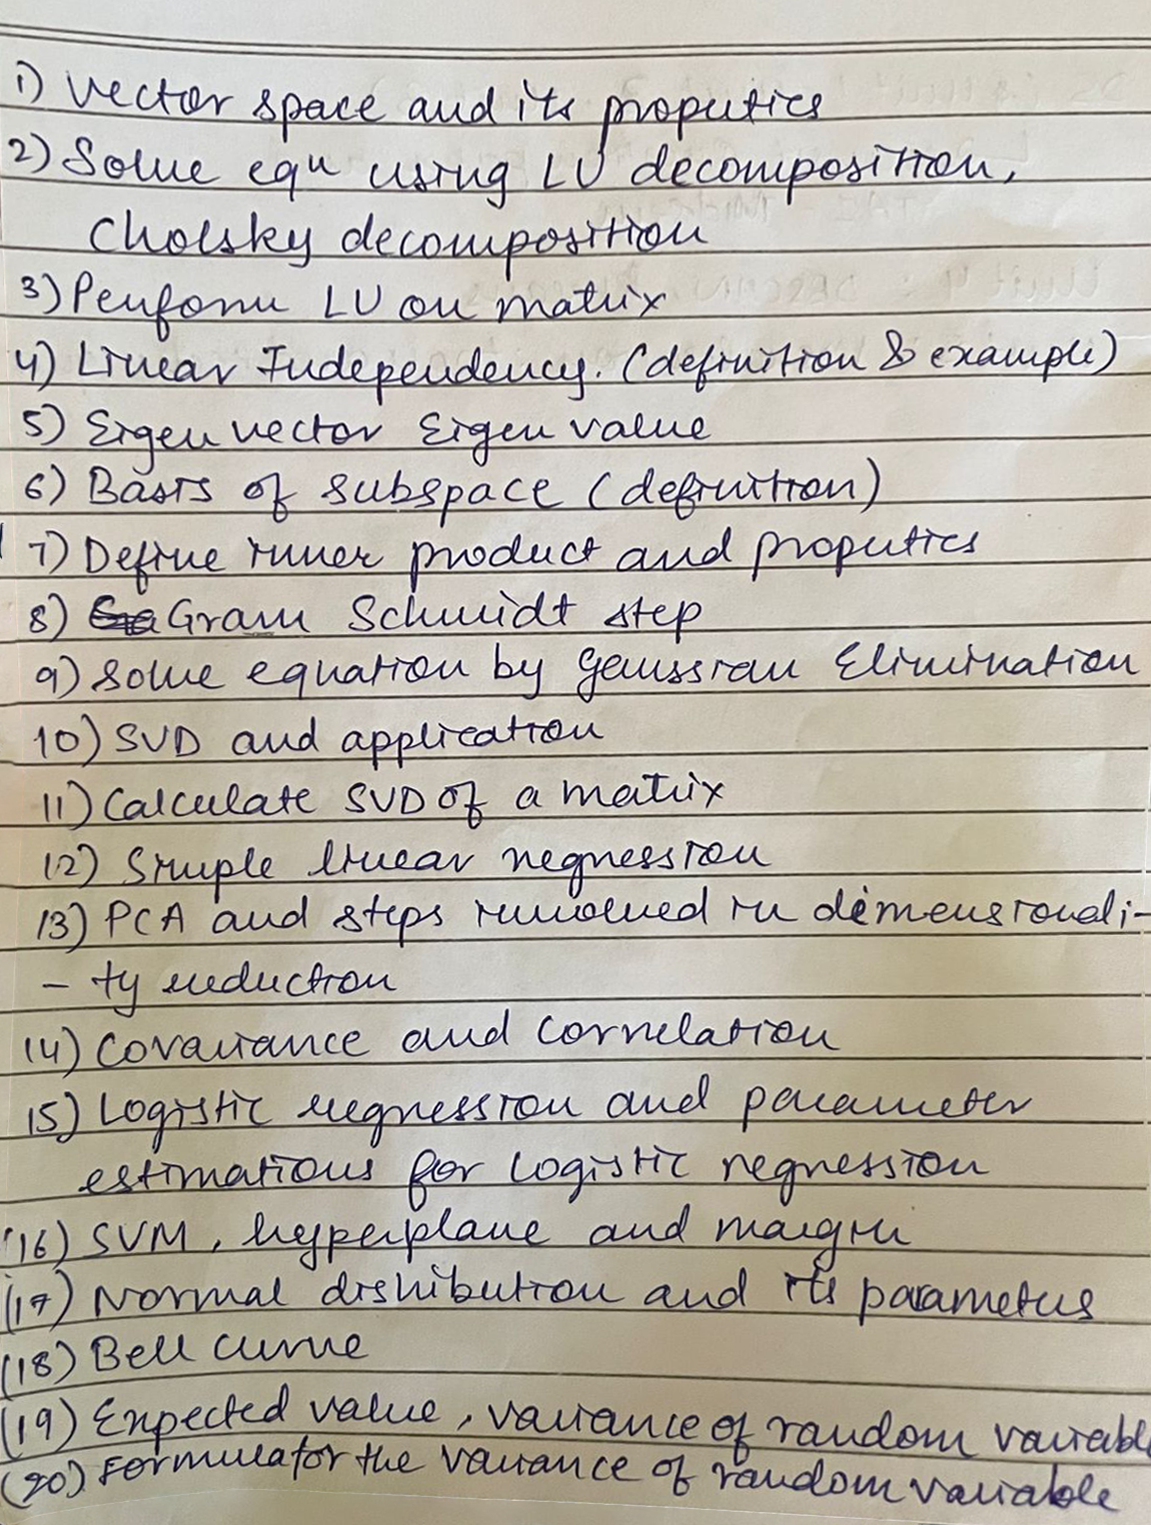 1) Vector space and its properties
2) Solve eqn using LU decomposition,
Cholsky decomposition
3) Perform LU on matrix
4) Linear Independency. (definition & example)
5) Eigen vector Eigen value
6) Basis of subspace (definition)
7) Define inner product and properties
8) Gram Schmidt step
9) Solve equation by Gaussian Elimination
10) SVD and application
11) Calculate SVD of a matrix
12) Simple linear regression
13) PCA and steps involved in dimensionali-
- ty reduction
14) Covariance and Correlation
15) Logistic regression and parameter
estimations for logistic regression
(16) SVM, hyperplane and margin
(17) Normal distribution and its parameters
(18) Bell curve
(19) Expected value, variance of random variable
(20) Formula for the variance of random variable